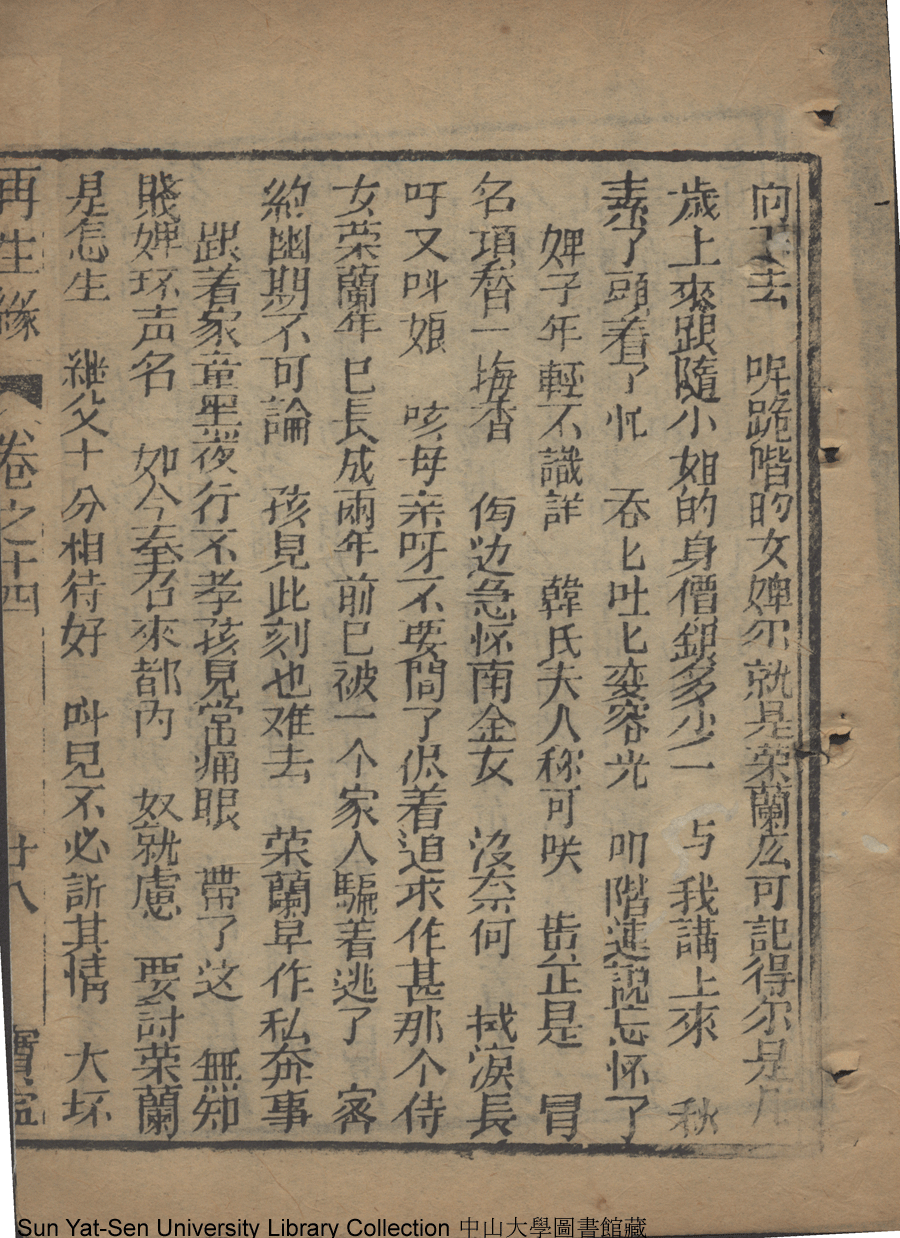 向下去　呢跪階的女婢尔就是荣蘭庅可記得尔是几
歲上來跟隨小姐的身價銀多少一　与我講上來　秋
素了頭着了忙　吞匕吐匕変容光　叩階連說忘怀了
婢子年輕不識詳　韓氏夫人称可咲　豈是　冒
名項替一塲杳　侮边急怀南金女　沒奈何　拭淚長
吁又叫娘　咳母亲呀不要問了伬着追求作甚那个侍
女荣蘭年已長成兩年前已被一个家人騙着逃了　宻
約幽期不可論　孩兒此刻也难去　荣蘭早作私奔事
跟着家童星夜行不孝孩兒常痛眼　帶了这　無知
賤婢坏声名　如今奉召來都內　奴就慮　要討荣蘭
是怎生　継父十分相待好　叫兒不必訴其情　大坏
再生緣　卷之十四　廿八　寶寧
Sun Yat-Sen University Library Collection 中山大學圖書館藏